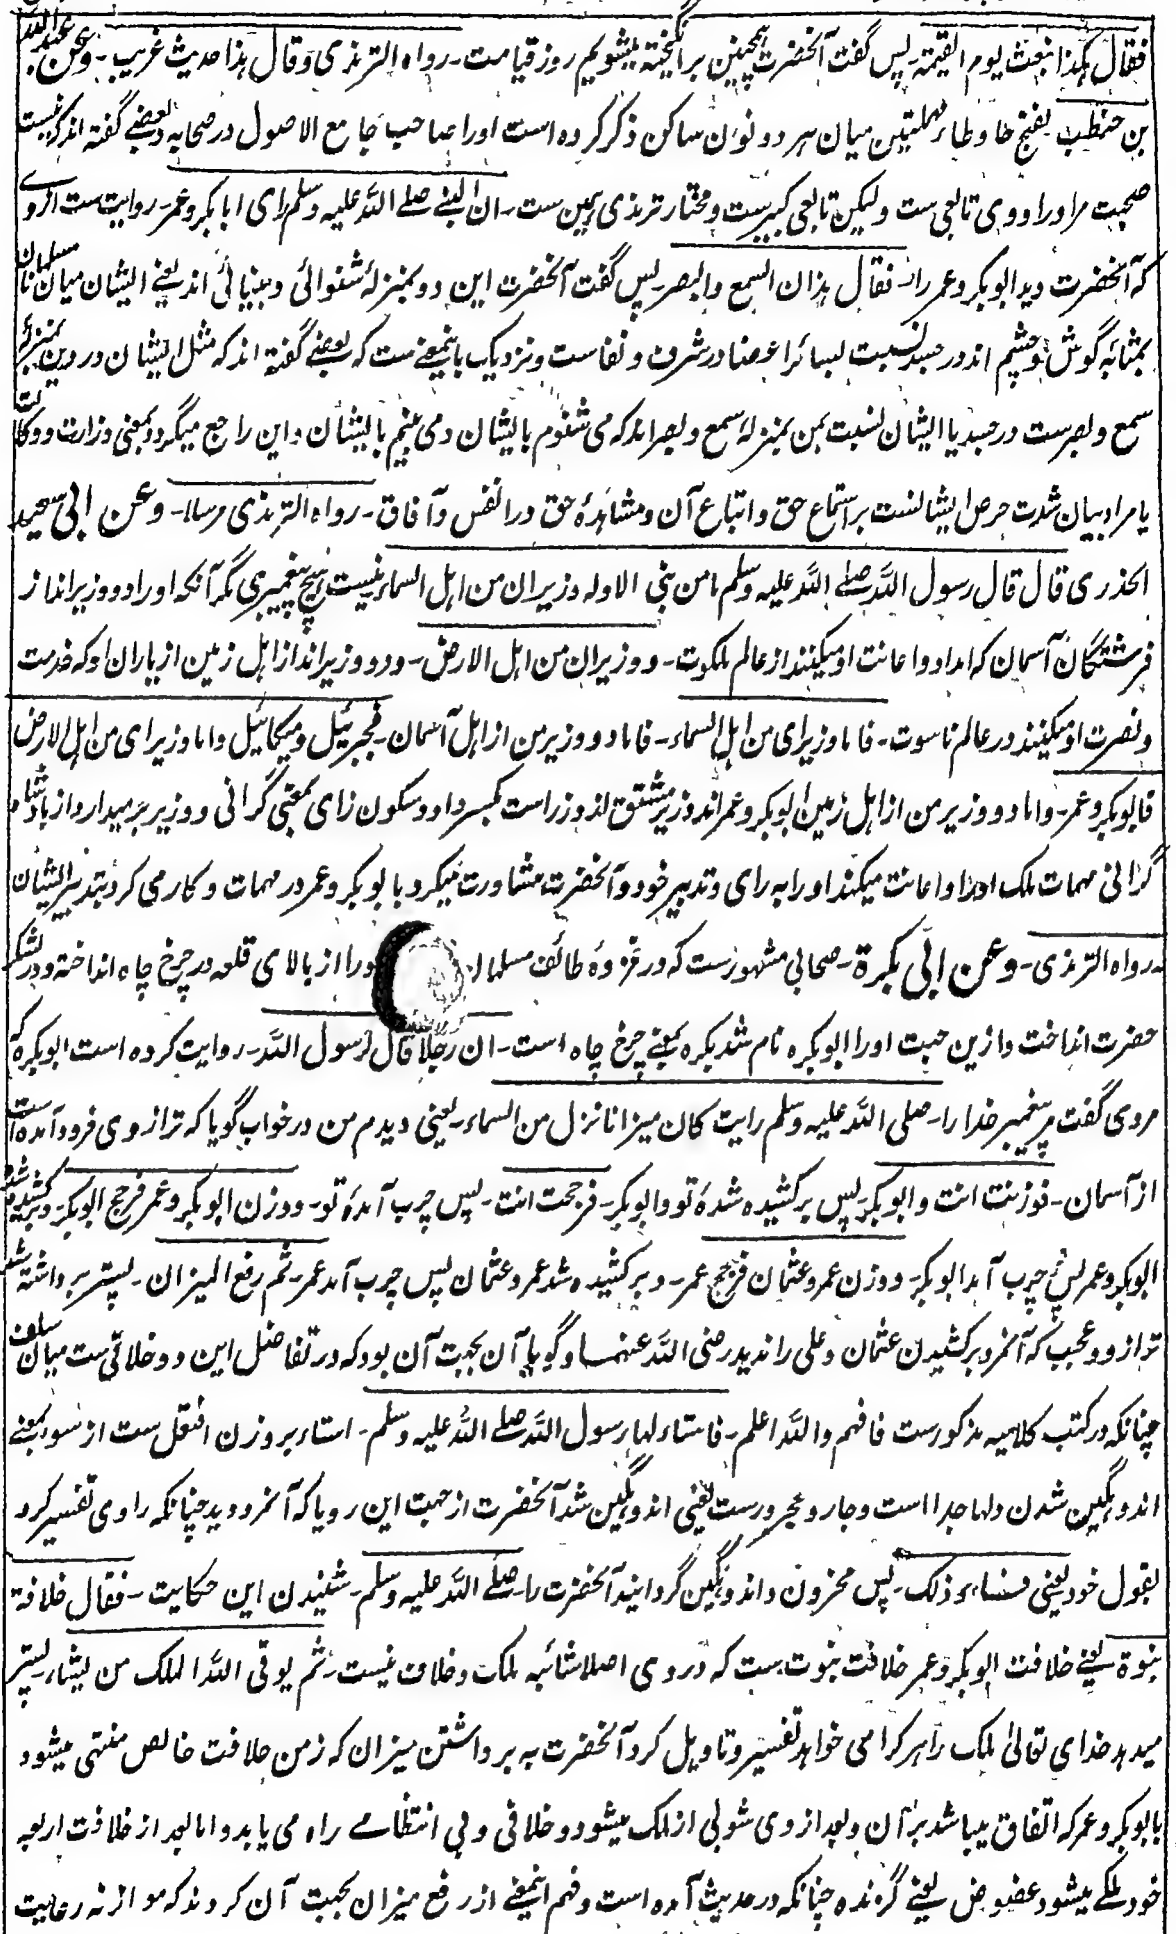 فقال هكذا نبعث يوم القيمة۔ پس گفت آنحضرت همچنین برانگیخته میشویم روز قیامت۔ رواه الترمذی وقال هذا حدیث غریب۔ وعن عبد الله
بن حنطب بفتح حا وطاء مهملتین میان هر دو نون ساکن ذکر کرده است او را صاحب جامع الاصول در صحابه و بعضے گفته اند که نیست
صحبت مر او را و وی تابعی ست ولیکن تابعی کبیرست و مختار ترمذی همین ست۔ ان النبی صلے الله علیه وسلم رای ابا بکر و عمر۔ روایت ست از وے
که آنحضرت دید ابو بکر و عمر را۔ فقال هذان السمع والبصر۔ پس گفت آنحضرت این دو بمنزلهٔ شنوائی و بینائی اند یعنے ایشان میان مسلمانان
بمثابهٔ گوش و چشم اند در جسد نسبت بسائر اعضا در شرف و نفاست و نزدیک باینمعنے ست که بعضے گفته اند که مثل ایشان در دین بمنزلهٔ
سمع و بصرست در جسد یا ایشان نسبت بمن بمنزلهٔ سمع و بصر اند که می شنوم بایشان و می بینم بایشان و این راجع میگردد بمعنی وزارت و وکالت
یا مراد بیان شدت حرص ایشانست بر استماع حق و اتباع آن و مشاهدهٔ حق در انفس و آفاق۔ رواه الترمذی مرسلا۔ وعن ابی سعید
الخدری قال قال رسول الله صلے الله علیه وسلم ما من نبی الا وله وزیران من اهل السماء۔ نیست هیچ پیغمبری مگر آنکه او را دو وزیر اند از
فرشتگان آسمان که امداد و اعانت او میکنند از عالم ملکوت۔ ووزیران من اهل الارض۔ و دو وزیر اند از اهل زمین از یاران او که خدمت
و نصرت او میکنند در عالم ناسوت۔ فاما وزیرای من اهل السماء۔ فاما دو وزیر من از اهل آسمان۔ فجبرئیل ومیکائیل واما وزیرای من اهل الارض
فابو بکر وعمر۔ واما دو وزیر من از اهل زمین ابو بکر و عمر اند وزیر مشتق از وزر است بکسر واو و سکون زای بمعنی گرانی و وزیر بر میدارد از پادشاه
گرانی مهمات ملک او را و اعانت میکند او را به رای و تدبیر خود و آنحضرت مشاورت میکرد با ابو بکر و عمر در مهمات و کار می کرد بتدبیر ایشان
رواه الترمذی۔ وعن ابی بکرة۔ صحابی مشهورست که در غزوهٔ طائف مسلمان خود را از بالای قلعه در چرخ چاه انداخته و در لشکر
حضرت انداخت و ازین جهت او را ابو بکره نام شد بکره بمعنے چرخ چاه است۔ ان رجلا قال لرسول الله۔ روایت کرده است ابو بکره که
مردی گفت مر پیغمبر خدا را۔ صلی الله علیه وسلم رایت کان میزانا نزل من السماء۔ یعنی دیدم من در خواب گویا که ترازوی فرود آمده است
از آسمان۔ فوزنت انت وابو بکر۔ پس برکشیده شدهٔ تو و ابو بکر۔ فرجحت انت۔ پس چرب آمدهٔ تو۔ ووزن ابو بکر وعمر فرجح ابو بکر۔ و برکشیده شد
ابو بکر و عمر پس چرب آمد ابو بکر۔ ووزن عمر وعثمان فرجح عمر۔ و برکشیده شد عمر و عثمان پس چرب آمد عمر۔ ثم رفع المیزان۔ پستر برداشته شد
ترازو و عجب که آنمرد برکشیدن عثمان و علی را ندید رضی الله عنهما و گویا آن بجهت آن بود که در تفاضل این دو خلافی ست میان سلف
چنانکه در کتب کلامیه مذکورست فافهم والله اعلم۔ فاستاء لها رسول الله صلے الله علیه وسلم۔ استاء بر وزن افتعل ست از سوء بمعنے
اندوهگین شدن و لها جدا است و جار و مجرورست یعنی اندوهگین شد آنحضرت از جهت این رویا که آنمرد دید چنانکه راوی تفسیر کرد
بقول خود یعنی فساءه ذلک۔ پس محزون و اندوهگین گردانید آنحضرت را۔ صلے الله علیه وسلم۔ شنیدن این حکایت۔ فقال خلافة
نبوة یعنے خلافت ابو بکر و عمر خلافت نبوت ست که در وی اصلا شائبه ملک و خلاف نیست۔ ثم یوتی الله الملک من یشاء۔ پستر
میدهد خدای تعالیٰ ملک را هر کرا می خواهد تفسیر و تاویل کرد آنحضرت به برداشتن میزان که زمن خلافت خالص منتهی میشود
با ابو بکر و عمر که اتفاق میباشد بر آن و بعد از وی شوبی از ملک میشود و خلافی و بی انتظامے راه می یابد و اما بعد از خلافت اربعه
خود ملکے میشود عضوض یعنے گزنده چنانکه در حدیث آمده است و فهم اینمعنے از رفع میزان بجهت آن کردند که موازنه رعایت